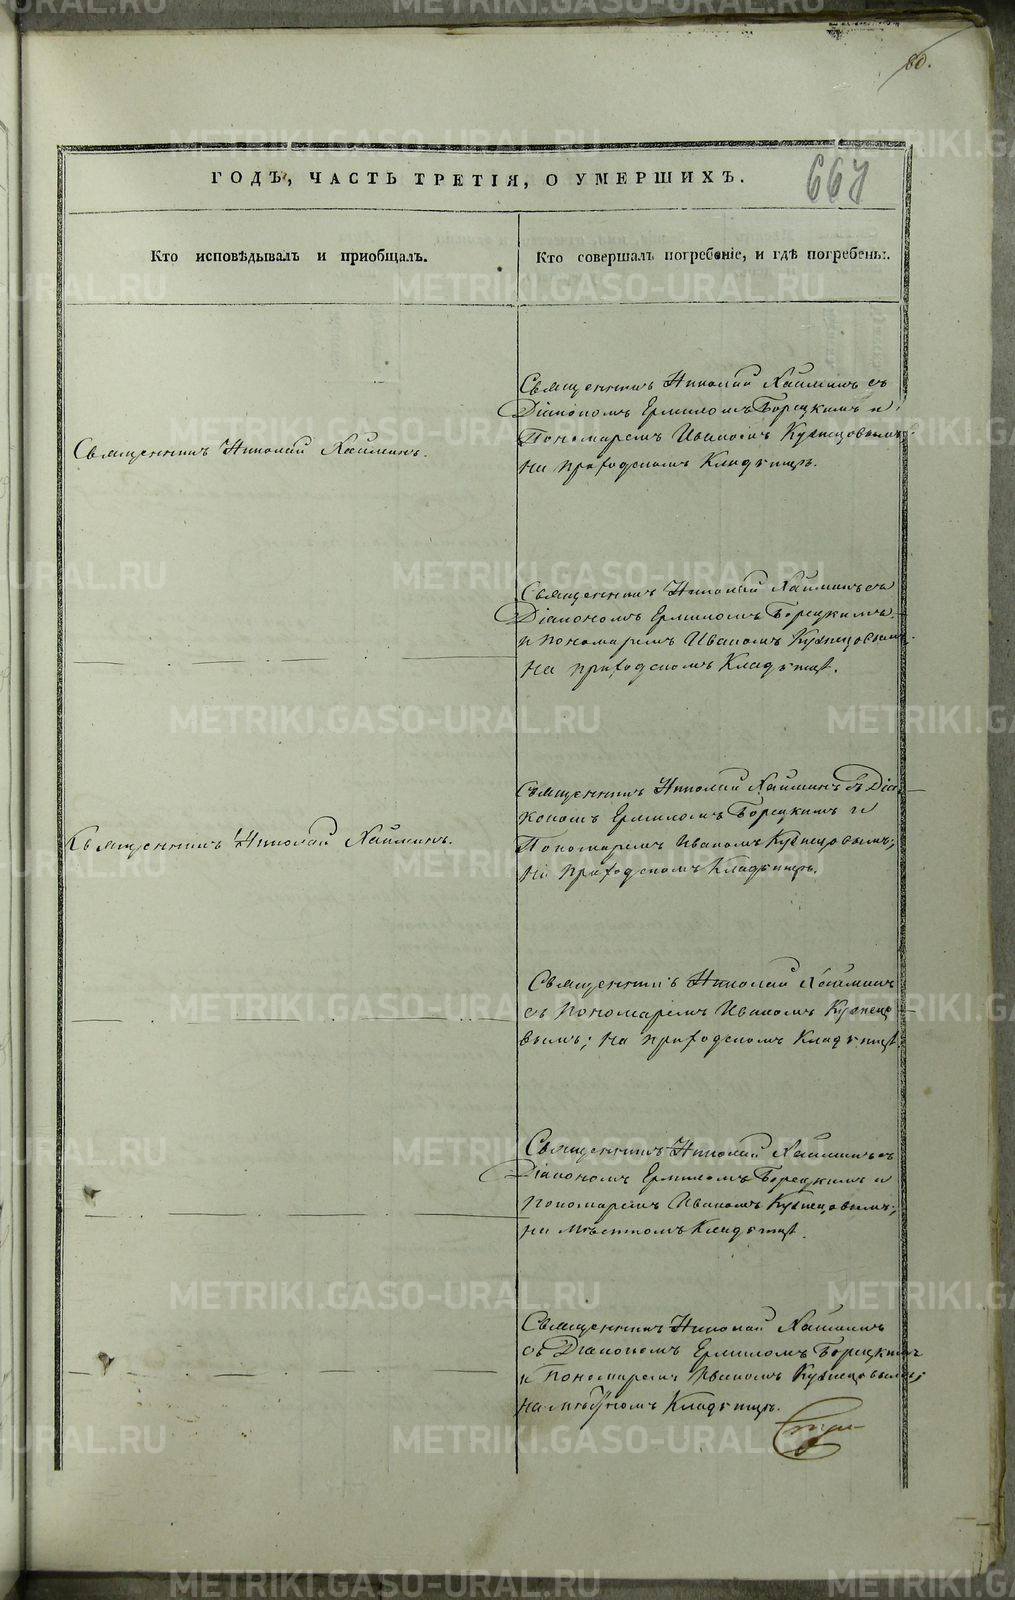 80.
667
ГОДЪ, ЧАСТЬ ТРЕТІЯ, О УМЕРШИХЪ.
Кто исповѣдывалъ и пріобщалъ.
Кто совершалъ погребеніе, и гдѣ погребены:
Священникъ Николай Хайминъ.
Священникъ Николай Хайминъ съ
Діакономъ Ермиломъ Борецкимъ и
Пономаремъ Иваномъ Кузнецовымъ
на приходскомъ Кладбищѣ.
Священникъ Николай Хайминъ съ
Діакономъ Ермиломъ Борецкимъ
и пономаремъ Иваномъ Кузнецовымъ
на приходскомъ Кладбищѣ.
Священникъ Николай Хайминъ.
Священникъ Николай Хайминъ съ Діа-
кономъ Ермиломъ Борецкимъ и
Пономаремъ Иваномъ Кузнецовымъ;
на приходскомъ Кладбищѣ.
Священникъ Николай Хайминъ
съ Пономаремъ Иваномъ Кузнецо-
вымъ; на приходскомъ Кладбищѣ.
Священникъ Николай Хайминъ съ
Діакономъ Ермиломъ Борецкимъ и
пономаремъ Иваномъ Кузнецовымъ;
на мѣстномъ Кладбищѣ.
Священникъ Николай Хайминъ
съ Діакономъ Ермиломъ Борецкимъ
и Пономаремъ Иваномъ Кузнецовымъ;
на мѣстномъ Кладбищѣ.
METRIKI.GASO-URAL.RU